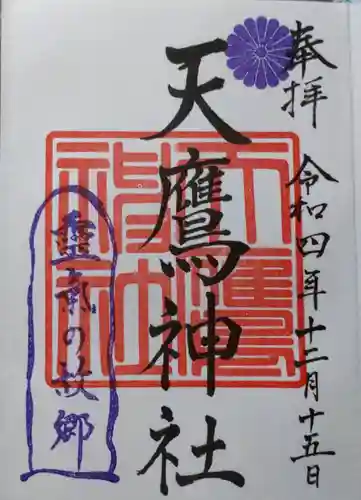 奉拝
令和四年十二月十五日
天鷹神社
天鷹神社
霊気の故郷